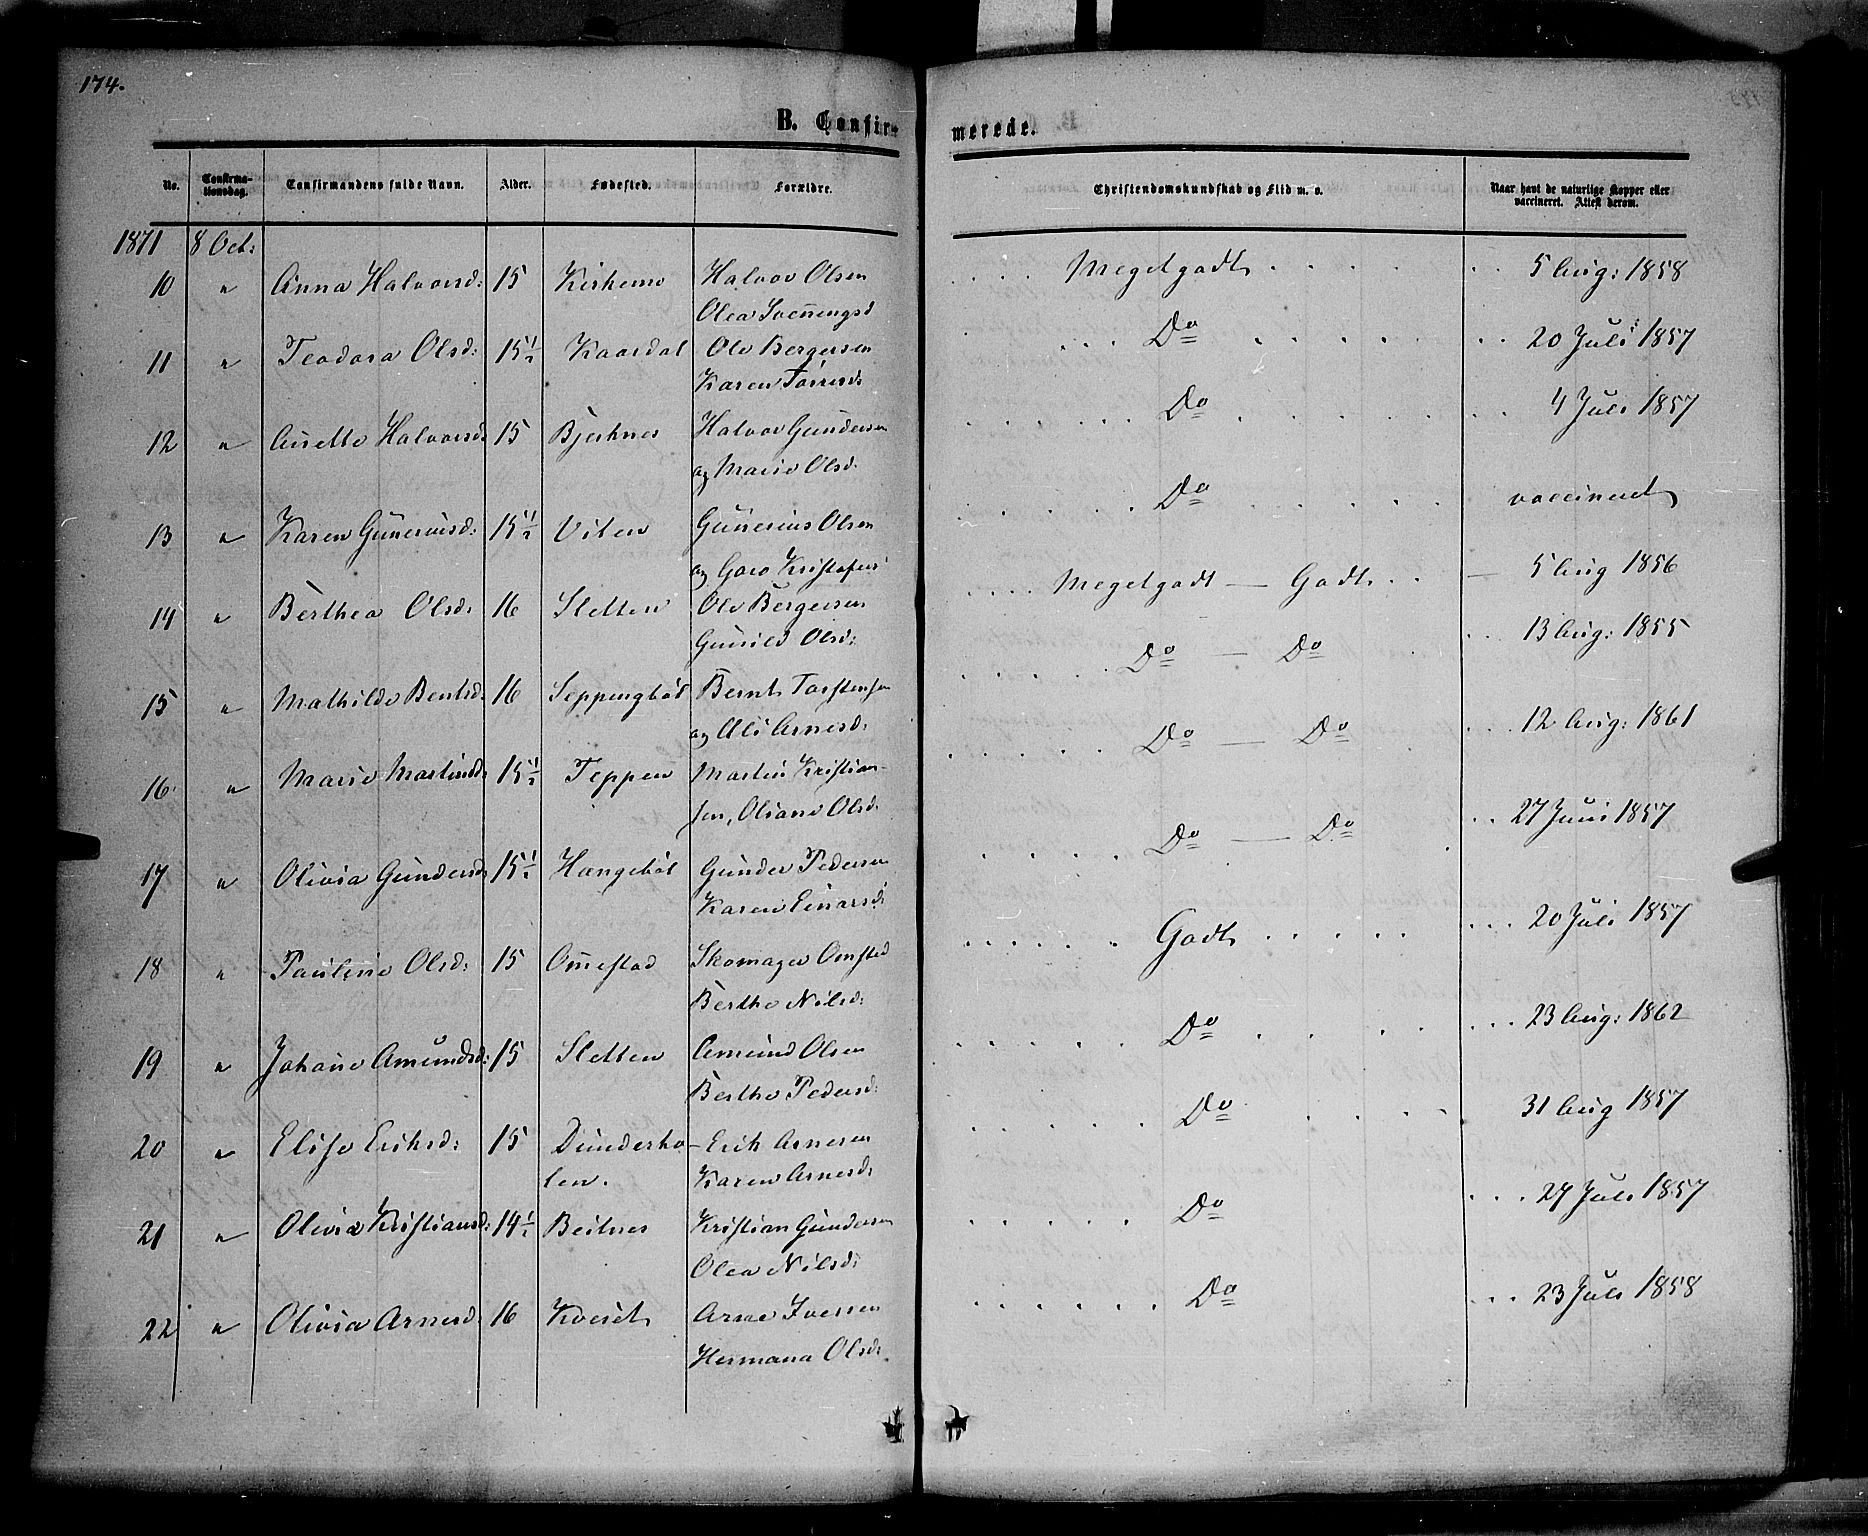 174.
B. Confir-
merede.
No. Confirma-tionsdag. Confirmandens fulde Navn. Alder. Fødested. Forældre. Christendomskundskab og Flid m. v. Naar havt de naturlige Kopper eller vaccineret. Attest derom.
1871 8 Oct:
10 " Anna Halvorsd: 15 Kirkemo Halvor Olsen . . . Megetgodt . . . 5 Aug: 1858
Olea Svenningsd
11 " Teodora Olsd: 15½ Kaardal Ole Bergersen . . . Do . . . 20 Juli 1857
Karen Torresd:
12 " Anette Halvorsd: 15 Bjerknes Halvor Gundersen . . . Do . . . 4 Juli 1857
og Marie Olsd:
13 " Karen Guneriusd: 15½ Viten Gunerius Olsen . . . Do . . . vaccineret
og Goro Kristofersd
14 " Berthea Olsd: 16 Sletten Ole Bergersen . . . Megetgodt — Godt . . — 5 Aug 1856
Gunild Olsd:
15 " Mathilde Bentsd: 16 Seppengböl Bernt Torstensen . . . Do — Do . . . 13 Aug: 1855
og Eli Arnesd:
16 " Marie Martinsd: 15½ Teppen Martin Kristian- . . . Do — Do . . . 12 Aug: 1861
sen, Oliane Olsd.
17 " Olivia Gundersd: 15½ Hangeböl Gunder Pedersen . . . Do — Do . . . 27 Juni 1857
Karen Einarsd:
18 " Pauline Olsd: 15 Omestad Skomager Omsted . . . Godt . . . 20 Juli 1857
Berthe Nilsd:
19 " Johane Amundsd: 15 Sletten Amund Olsen . . . Do . . . 23 Aug: 1862
Berthe Pedersd:
20 " Elise Eriksd: 15 Dunderho- Erik Arnesen . . . Do . . . 31 Aug 1857
len. Karen Arnesd:
21 " Olivia Kristiansd: 14½ Beitnes Kristian Gundersen . . . Do . . . 27 Juli 1857
Olea Nilsd:
22 " Olivia Arnesd 16 Kveset Arne Iversen . . . Do . . . 23 Juli 1858
Hermana Olsd: